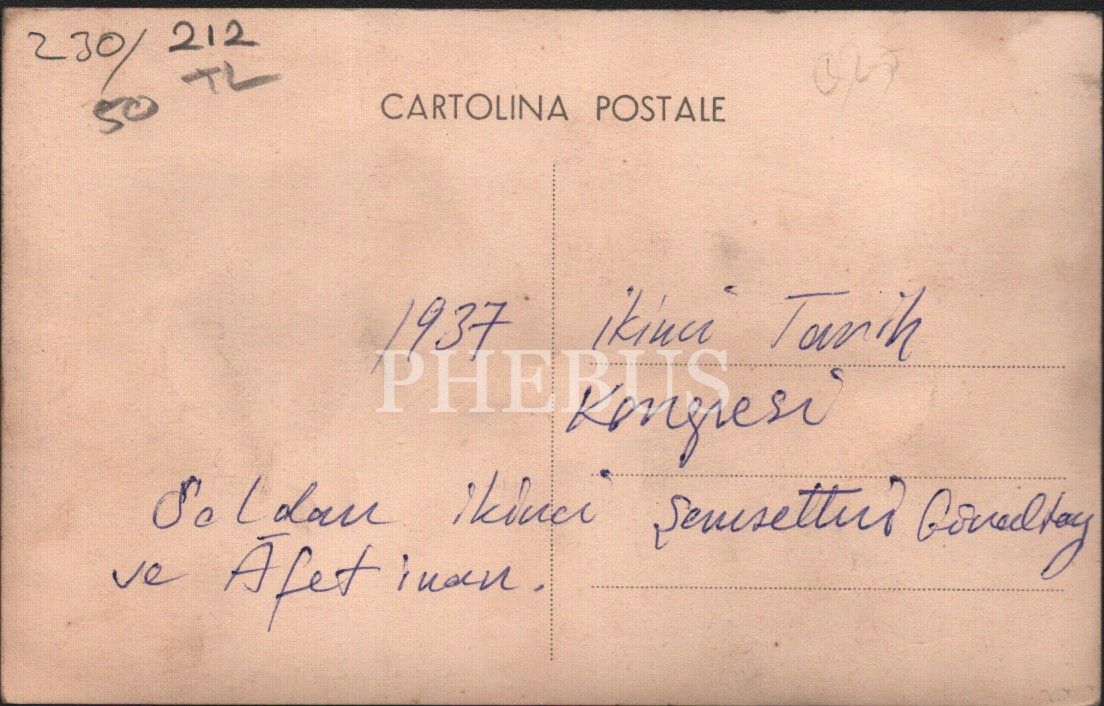 230/ 212
50 TL
CARTOLINA POSTALE
1937 ikinci Tarih
PHEBUS
Kongresi
Soldan ikinci Şemsettin Günaltay
ve Âfet inan.